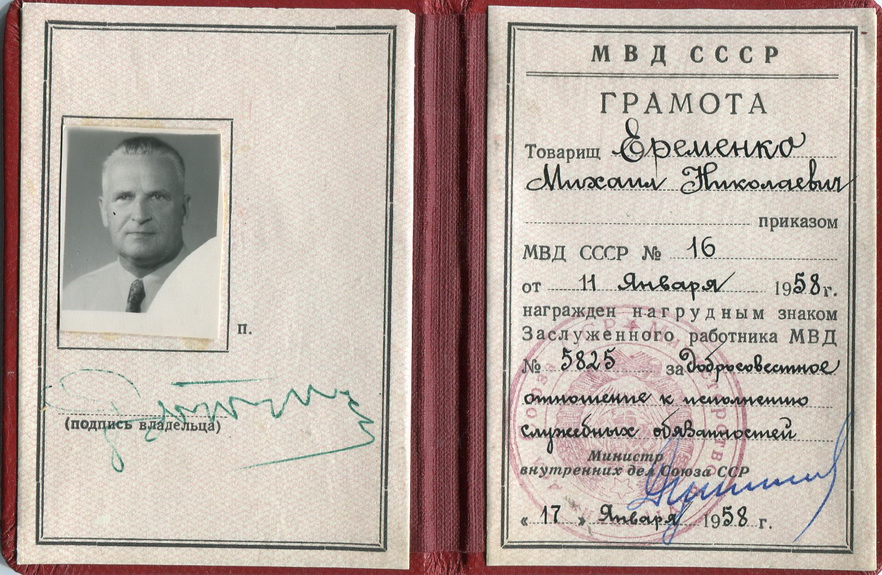 п.
(подпись владельца)
МВД СССР
ГРАМОТА
Товарищ Еременко
Михаил Николаевич
приказом
МВД СССР № 16
от 11 Января 1958 г.
награжден нагрудным знаком
Заслуженного работника МВД
№ 5825 за добросовестное
отношение к исполнению
служебных обязанностей
Министр
внутренних дел Союза ССР
« 17 » Января 1958 г.